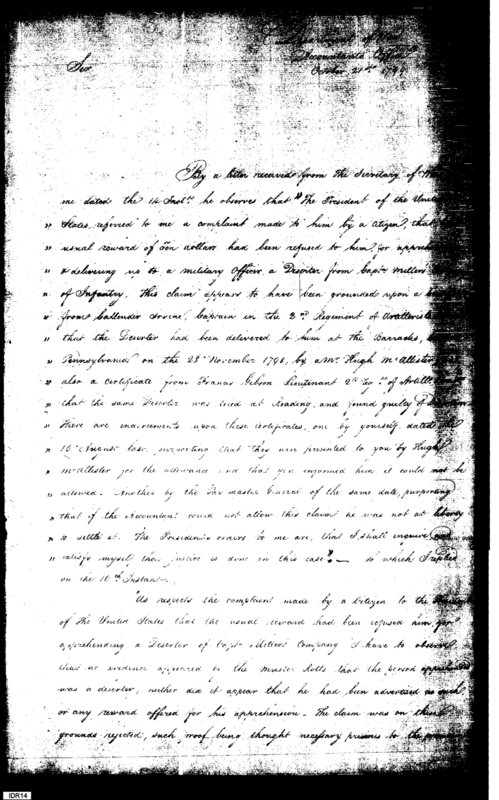 Department of War
Accountants Office
October 21st 1799
Sir
By a letter received from the Secretary of War
me dated the 14 Inst. he observes that "The President of the United
" States, referred to me a complaint made to him by a Citizen, that
" usual reward of Ten dollars had been refused to him, for
" & delivering up to a military Officer a Deserter from Capt. Millers
" of Infantry. This claim appears to have been grounded upon a
" from Callender Irvine, Captain in the 2nd Regiment of Artillerists
" that the Deserter had been delivered to him at the Barracks,
" Pennsylvania on the 28 November 1798, by a Mr. Hugh McAllister
" also a certificate from Francis Gibson Lieutenant 2d of
" that the same Deserter was tried at Reading, and found guilty of
" There are endorsements upon these certificates, one by yourself, dated
" 15 August last, purporting that they were presented to you by Hugh
" McAllister for the allowance and that you informed him it could not be
" allowed. Another by the Pay master General of the same date, purporting
" that if the Accountant could not allow this claim he was not at liberty
" to settle it. The President's orders to me are, that I shall enquire and
" satisfy myself that justice is done in this case". — to which I replied
on the 16th Instant.
"As respects the complaint made by a Citizen to the
of The United States that the usual reward had been refused him, for
apprehending a Deserter of Capt. Millers Company I have to observe
that no evidence appeared in the Muster Rolls that the person
was a deserter, neither did it appear that he had been advertised as such
or any reward offered for his apprehension. The claim was on these
grounds rejected, such proof being thought necessary previous to the
IDR14